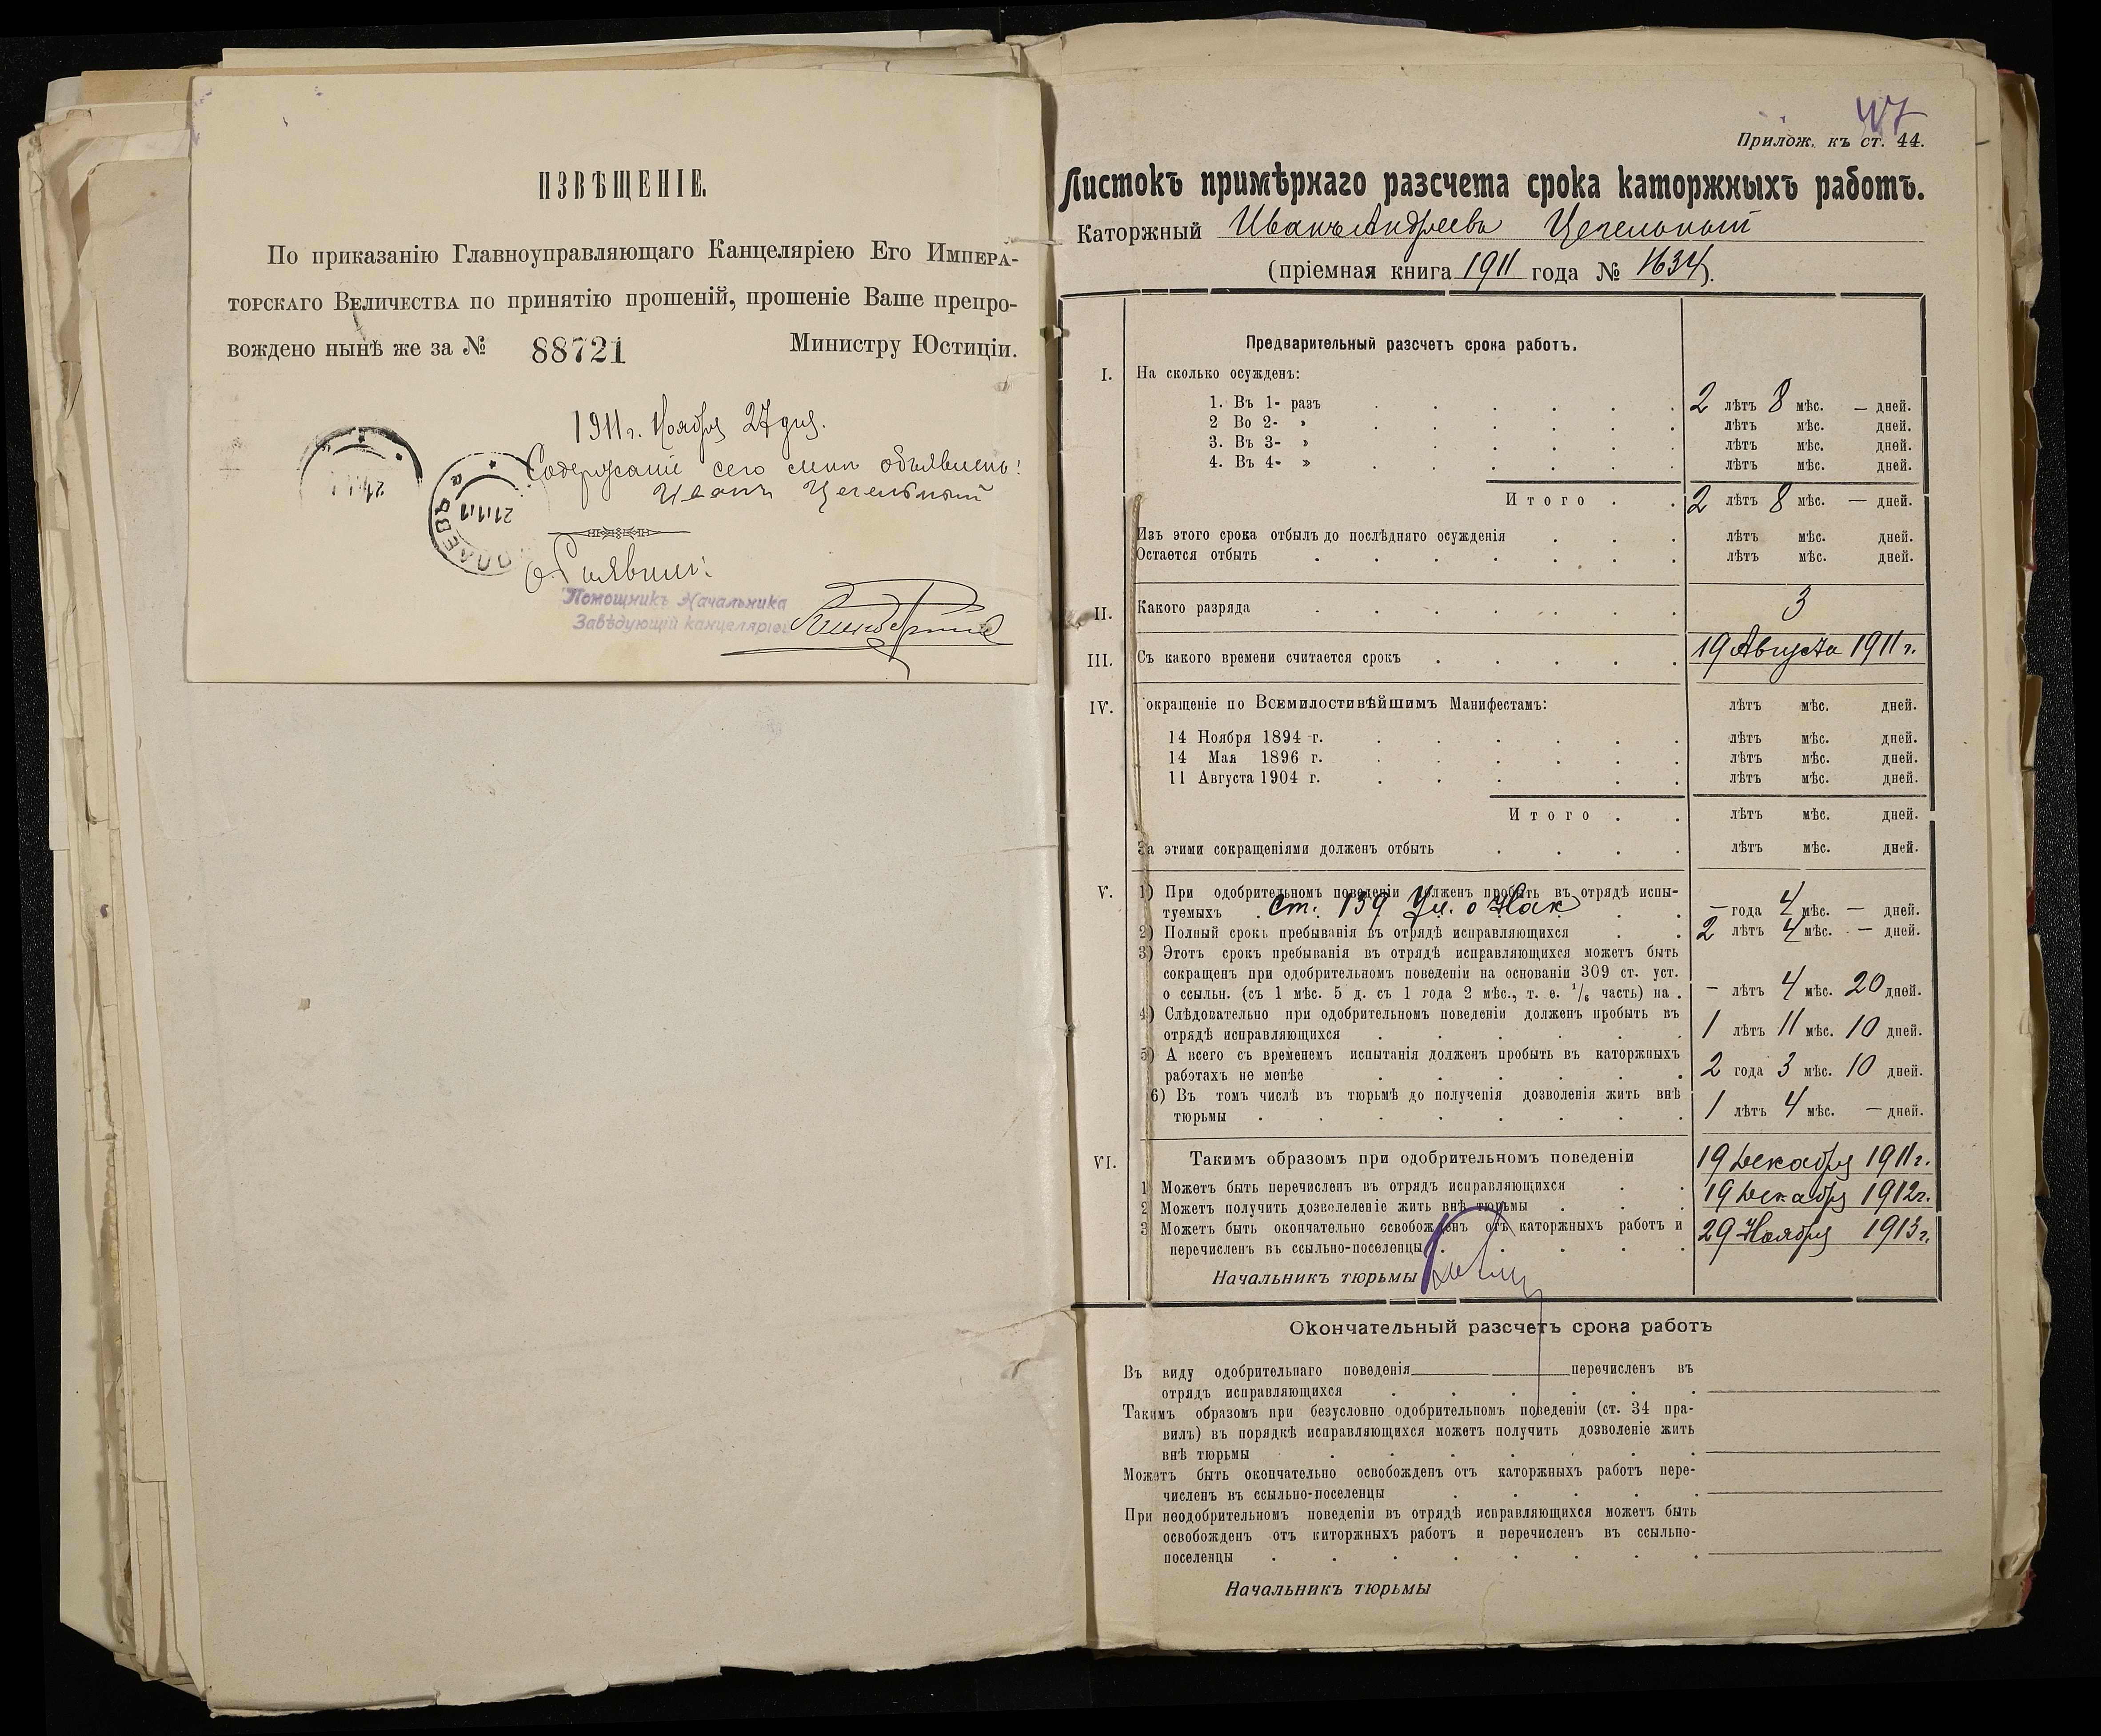 ИЗВѢЩЕНІЕ.
По приказанію Главноуправляющаго Канцеляріею Его Импера-
торскаго Величества по принятію прошеній, прошеніе Ваше препро-
вождено нынѣ же за № 88721 Министру Юстиціи.
1911 г. Ноября 27 дня.
Содержаніе сего мнѣ объявлено:
Иванъ Цегельный
21 11 11
Объявилъ:
Помощникъ Начальника
Завѣдующій канцеляріей
47
Прилож. къ ст. 44.
Листокъ примѣрнаго разсчета срока каторжныхъ работъ.
Каторжный Иванъ Андреевъ Цегельный
(пріемная книга 1911 года № 1634).
Предварительный разсчетъ срока работъ.
I. На сколько осужденъ:
1. Въ 1- разъ . . . . . . 2 лѣтъ 8 мѣс. — дней.
2 Во 2- » . . . . . . лѣтъ мѣс. дней.
3. Въ 3- » . . . . . лѣтъ мѣс. дней.
4. Въ 4- » . . . . . . лѣтъ мѣс. дней.
Итого . . 2 лѣтъ 8 мѣс. — дней.
Изъ этого срока отбылъ до послѣдняго осужденія . . . лѣтъ мѣс. дней.
Остается отбыть . . . . . . . лѣтъ мѣс. дней.
II. Какого разряда . . . . . . . 3
III. Съ какого времени считается срокъ . . . . . 19 Августа 1911 г.
IV. окращеніе по Всемилостивѣйшимъ Манифестамъ: лѣтъ мѣс. дней.
14 Ноября 1894 г. . . . . . . лѣтъ мѣс. дней.
14 Мая 1896 г. . . . . . . лѣтъ мѣс. дней.
11 Августа 1904 г. . . . . . лѣтъ мѣс. дней.
Итого . . лѣтъ мѣс. дней.
За этими сокращеніями долженъ отбыть . . . . лѣтъ мѣс. дней.
V. 1) При одобрительномъ поведеніи долженъ пробыть въ отрядѣ испы-
туемыхъ . ст. 139 Ул. о Нак . . — года 4 мѣс. — дней.
2) Полный срокъ пребыванія въ отрядѣ исправляющихся . . 2 лѣтъ 4 мѣс. — дней.
3) Этотъ срокъ пребыванія въ отрядѣ исправляющихся можетъ быть
сокращенъ при одобрительномъ поведеніи на основаніи 309 ст. уст.
о ссыльн. (съ 1 мѣс. 5 д. съ 1 года 2 мѣс., т. е. 1/6 часть) на . — лѣтъ 4 мѣс. 20 дней.
4) Слѣдовательно при одобрительномъ поведеніи долженъ пробыть въ
отрядѣ исправляющихся . . . . . . 1 лѣтъ 11 мѣс. 10 дней.
5) А всего съ временемъ испытанія долженъ пробыть въ каторжныхъ
работахъ не менѣе . . . . . . 2 года 3 мѣс. 10 дней.
6) Въ томъ числѣ въ тюрьмѣ до полученія дозволенія жить внѣ
тюрьмы . . . . . . . . 1 лѣтъ 4 мѣс. — дней.
VI. Такимъ образомъ при одобрительномъ поведеніи 19 Декабря 1911 г.
1 Можетъ быть перечисленъ въ отрядъ исправляющихся . . 19 Декабря 1912 г.
2 Можетъ получить дозволеленіе жить внѣ тюрьмы . . .
3 Можетъ быть окончательно освобожденъ отъ каторжныхъ работъ и 29 Ноября 1913 г.
перечисленъ въ ссыльно-поселенцы . . . . .
Начальникъ тюрьмы
Окончательный разсчетъ срока работъ
Въ виду одобрительнаго поведенія перечисленъ въ
отрядъ исправляющихся . . . . . .
Такимъ образомъ при безусловно одобрительномъ поведеніи (ст. 34 пра-
вилъ) въ порядкѣ исправляющихся можетъ получить дозволеніе жить
внѣ тюрьмы . . . . . . .
Можетъ быть окончательно освобожденъ отъ каторжныхъ работъ пере-
численъ въ ссыльно-поселенцы . . . . .
При неодобрительномъ поведеніи въ отрядѣ исправляющихся можетъ быть
освобожденъ отъ киторжныхъ работъ и перечисленъ въ ссыльно-
поселенцы . . . . . . . .
Начальникъ тюрьмы